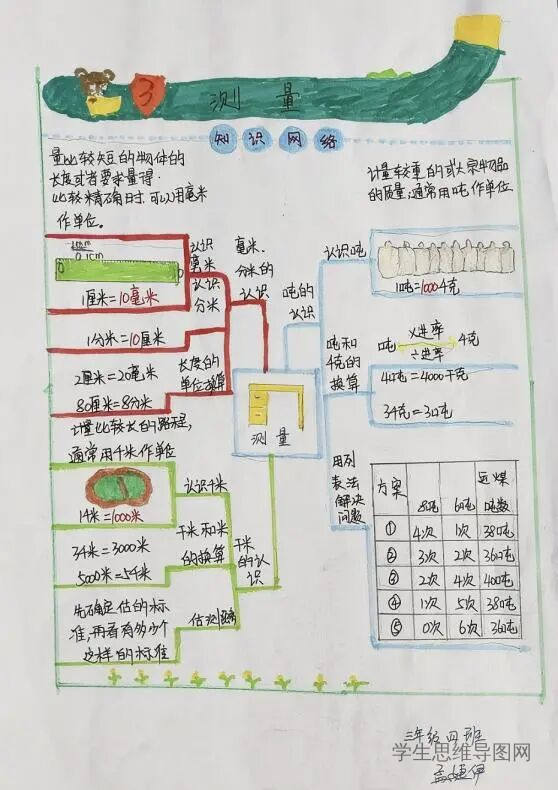 3 测量
知识网络
量比较短的物体的
长度或者要求量得
比较精确时,可以用毫米
作单位。
计量较重的或大宗物品
的质量,通常用吨作单位
认识
毫米
1厘米=10毫米
认识
分米
1分米=10厘米
毫米、
分米的
认识
长度的
单位换算
2厘米=20毫米
80厘米=8分米
计量比较长的路程,
通常用千米作单位
认识千米
1千米=1000米
千米和米
的换算
3千米=3000米
5000米=5千米
千米的认识
估测路
先确定估的标
准,再看有多少个
这样的标准
测量
吨的
认识
认识吨
1吨=1000千克
吨和
千克的
换算
吨 ×进率 千克
÷进率
4吨=4000千克
用列
表法
解决
问题
方案 8吨 6吨 运煤吨数
① 4次 1次 38吨
② 3次 2次 36吨
③ 2次 4次 40吨
④ 1次 5次 38吨
⑤ 0次 6次 36吨
三年级四班
学生思维导图网